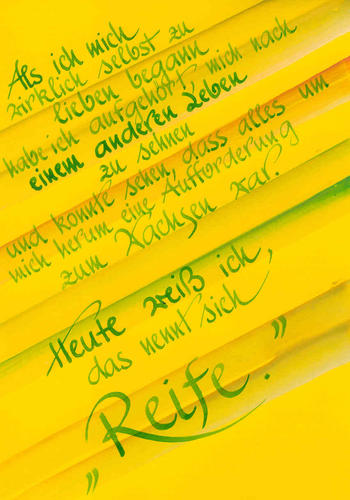 Als ich mich
wirklich selbst zu
lieben begann
habe ich aufgehört mich nach
einem anderen Leben
zu sehnen
und konnte sehen, dass alles um
mich herum eine Aufforderung
zum Wachsen war.
Heute weiß ich,
das nennt sich
„Reife.”